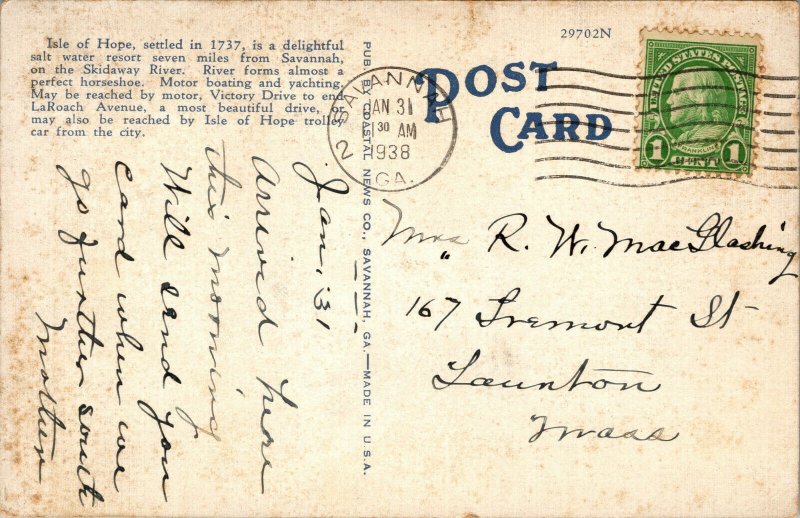 Isle of Hope, settled in 1737, is a delightful
salt water resort seven miles from Savannah,
on the Skidaway River. River forms almost a
perfect horseshoe. Motor boating and yachting.
May be reached by motor, Victory Drive to end
LaRoach Avenue, a most beautiful drive, or
may also be reached by Isle of Hope trolley
car from the city.
Jan, 31
Arrived here
this morning
Will send you
card when we
go further south
Mother
PUB. BY COASTAL NEWS CO., SAVANNAH, GA.—MADE IN U.S.A.
POST
CARD
29702N
SAVANNAH
JAN 31
30 AM
1938
GA.
2
UNITED STATES POSTAGE
FRANKLIN
1 CENT 1
Mrs R. W. MacGlashing
167 Tremont St
Taunton
Mass